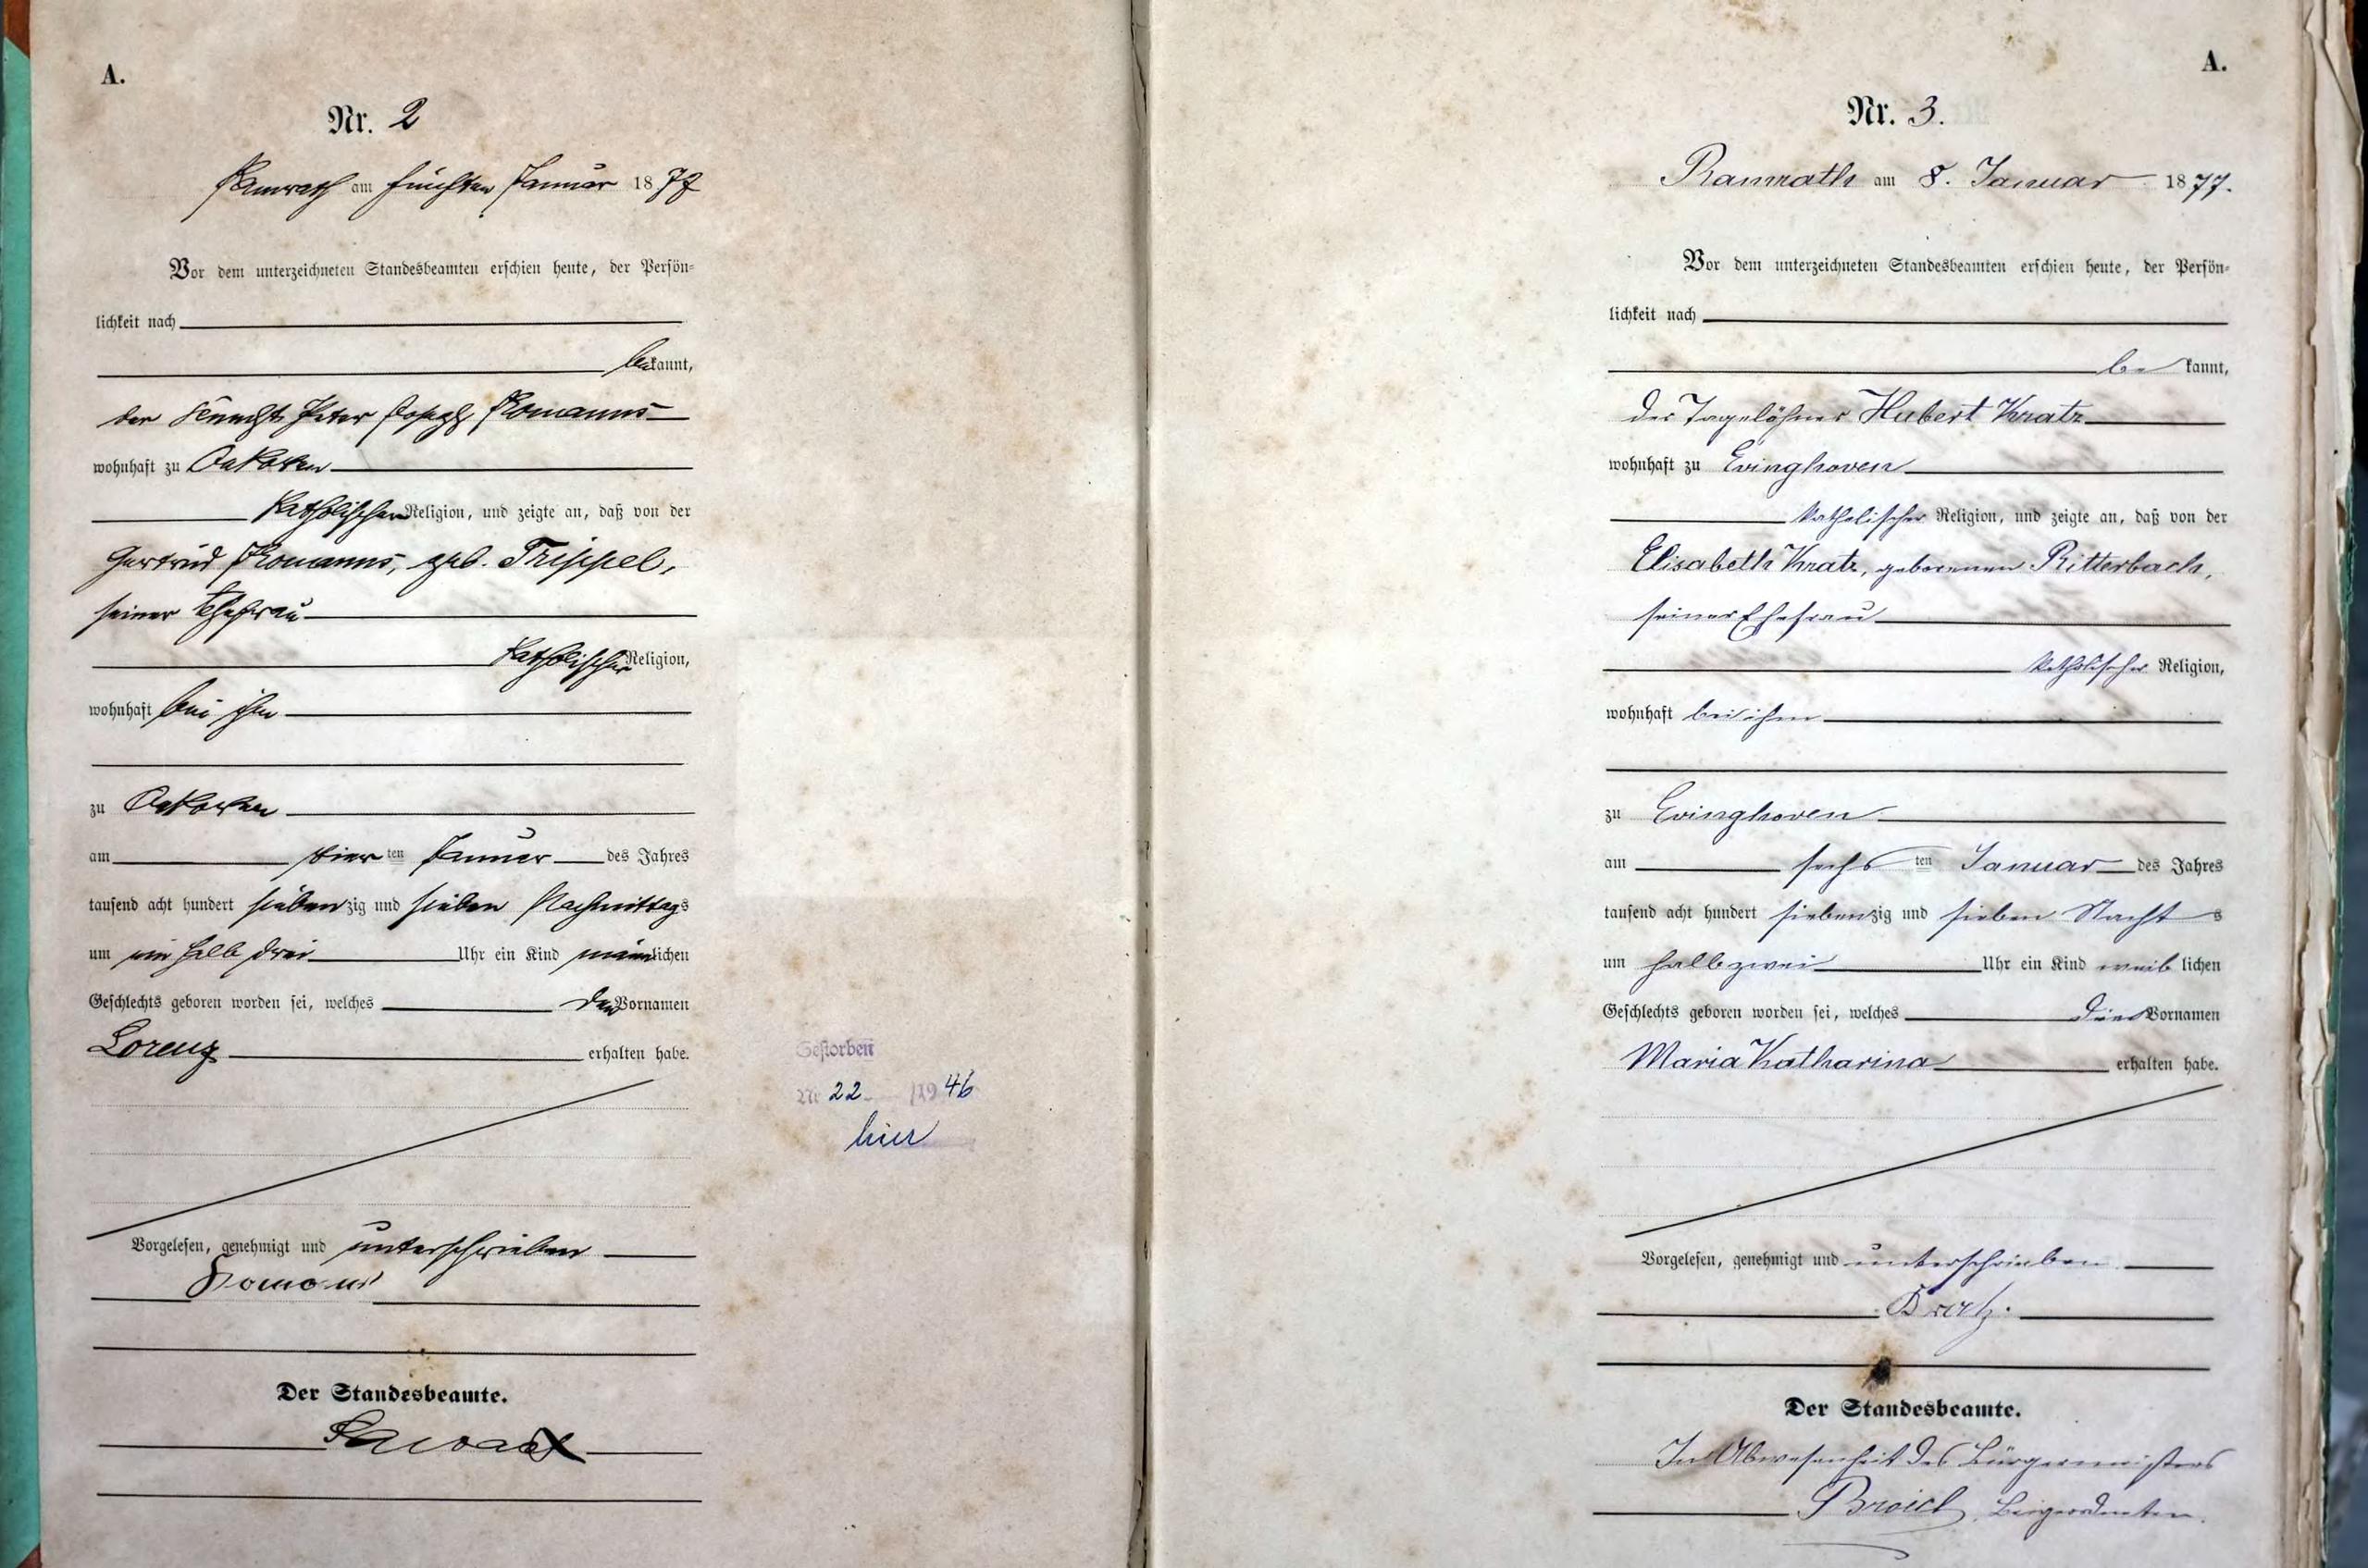 A.
Nr. 2
Ramrath am fünften Januar 1877
Vor dem unterzeichneten Standesbeamten erschien heute, der Persön-
lichkeit nach
bekannt,
der Knecht Peter Joseph Romanns
wohnhaft zu Oekoven
katholischer Religion, und zeigte an, daß von der
Gertrud Romanns, geb. Trippel,
seiner Ehefrau
katholischer Religion,
wohnhaft bei ihm
zu Oekoven
am vierten Januar des Jahres
tausend acht hundert siebenzig und sieben Nachmittags
um ein halb drei Uhr ein Kind männlichen
Geschlechts geboren worden sei, welches den Vornamen
Lorenz erhalten habe.
Gestorben
Nr 22 /1946
hier
Vorgelesen, genehmigt und unterschrieben
Der Standesbeamte.
A.
Nr. 3.
Ramrath am 8. Januar 1877.
Vor dem unterzeichneten Standesbeamten erschien heute, der Persön-
lichkeit nach
bekannt,
der Tagelöhner Hubert Kratz
wohnhaft zu Evinghoven
katholischer Religion, und zeigte an, daß von der
Elisabeth Kratz, geborenen Ritterbach,
seiner Ehefrau
katholischer Religion,
wohnhaft bei ihm
zu Evinghoven
am sechsten Januar des Jahres
tausend acht hundert siebenzig und sieben Nachts
um halb zwei Uhr ein Kind weiblichen
Geschlechts geboren worden sei, welches die Vornamen
Maria Katharina erhalten habe.
Vorgelesen, genehmigt und unterschrieben
Kratz.
Der Standesbeamte.
In Abwesenheit des Bürgermeisters
Broich, Beigeordneten.